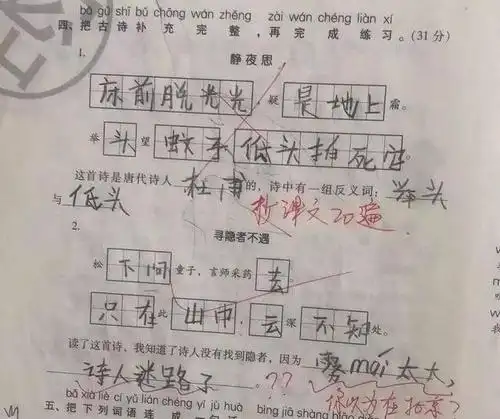 bǎ gǔ shī bǔ chōng wán zhěng zài wán chéng liàn xí
四、把古诗补充完整，再完成练习。(31分)
1.
静夜思
床前脱光光，疑是地上霜。
举头望蚊子，低头拍死它。
这首诗是唐代诗人杜甫的，诗中有一组反义词：举头
与低头
抄课文20遍.
2.
寻隐者不遇
松下问童子，言师采药去。
只在此山中，云深不知处。
读了这首诗，我知道了诗人没有找到隐者，因为雾mái太大，
诗人迷路了。??
你以为在拍景?
bǎ xià liè cí yǔ lián chéng yí jù huà bìng jiā shàng biāo diǎn
五、把下列词语连成一句话